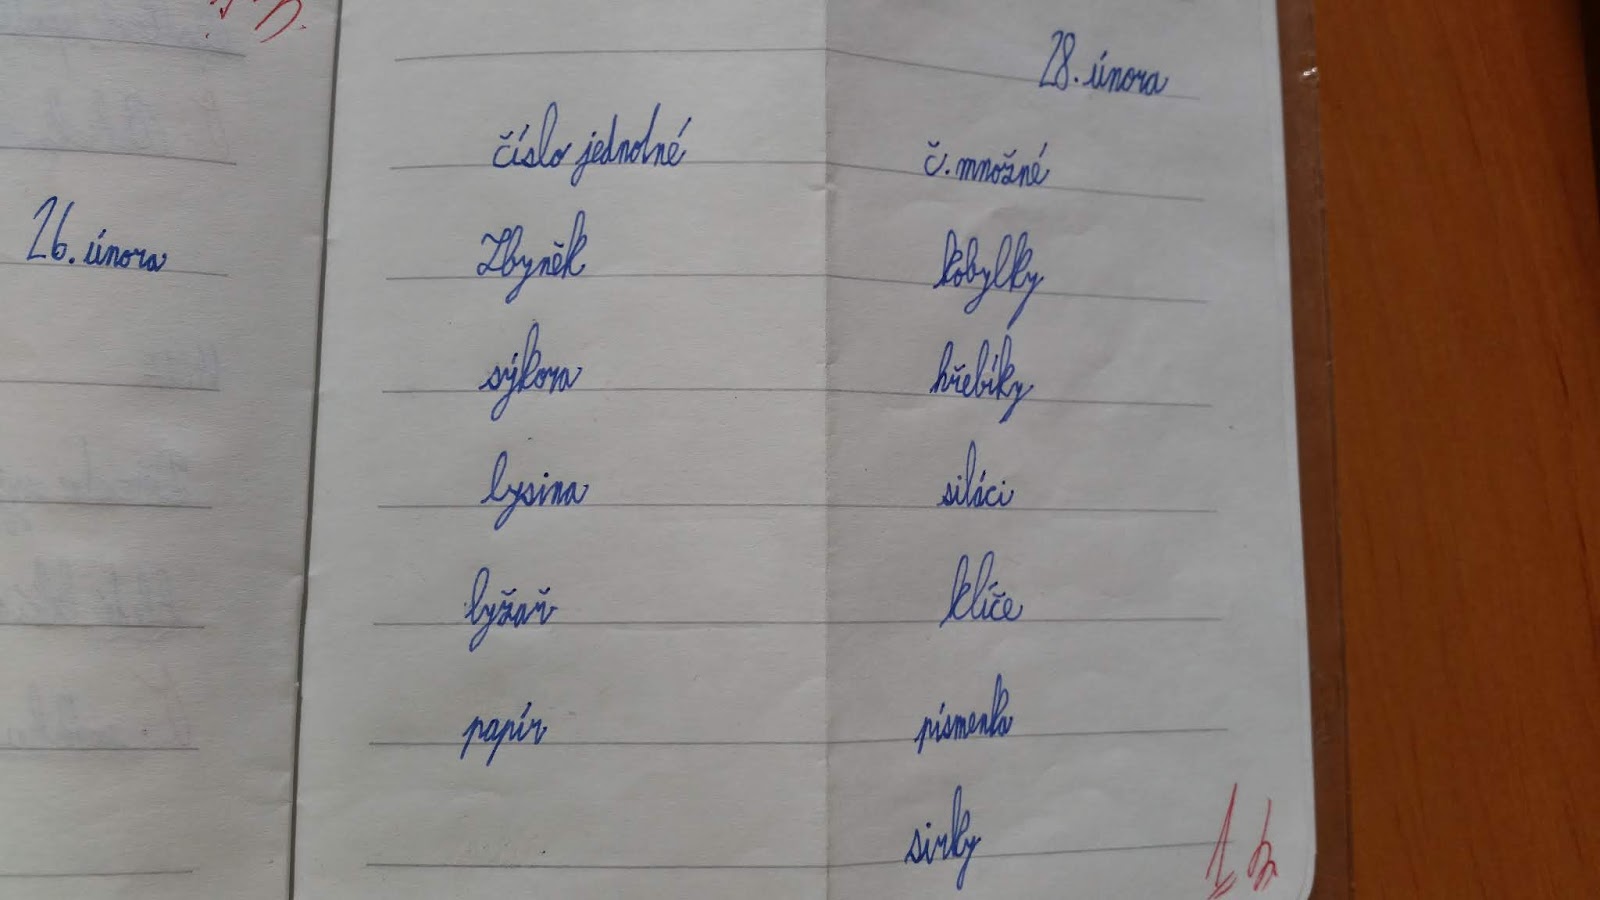 26. února
28. února
číslo jednotné č. množné
Zbyněk kobylky
sýkora hřebíky
lysina siláci
lyžař klíče
papír písmenka
sirky
1